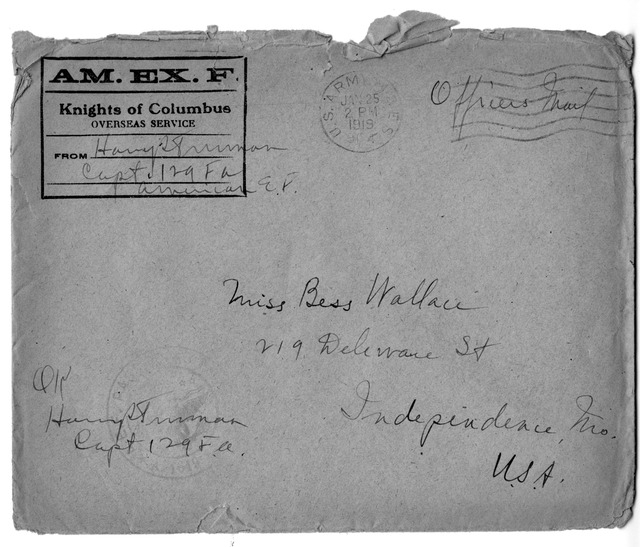 AM. EX. F.
Knights of Columbus
OVERSEAS SERVICE
FROM Harry S Truman
Capt. 129 F a
American E. F.
U.S. ARMY
JAN 25
2 PM
1919
Officers Mail
Miss Bess Wallace
219 Deleware St
Independence, Mo.
U.S.A.
OK
Harry S Truman
Capt 129 F.a.